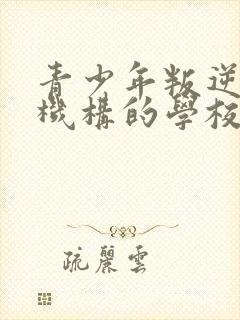 青少年叛逆
機構的學校
疏麗雲